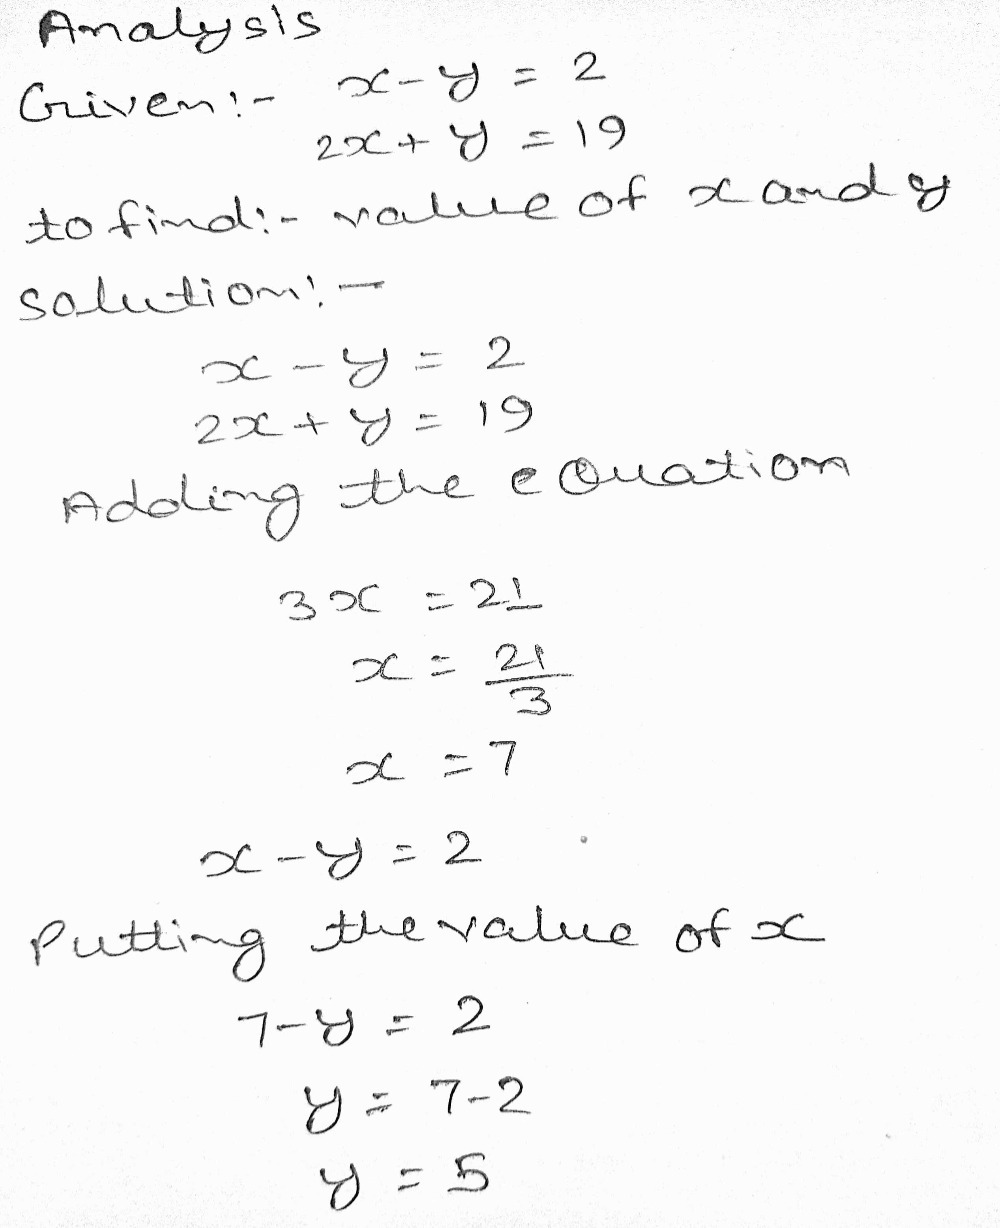 Analysis
Given:- x-y = 2
2x+y = 19
to find:- value of x and y
solution:-
x - y = 2
2x + y = 19
Adding the equation
3x = 21
x = 21/3
x = 7
x - y = 2
Putting the value of x
7-y = 2
y = 7-2
y = 5